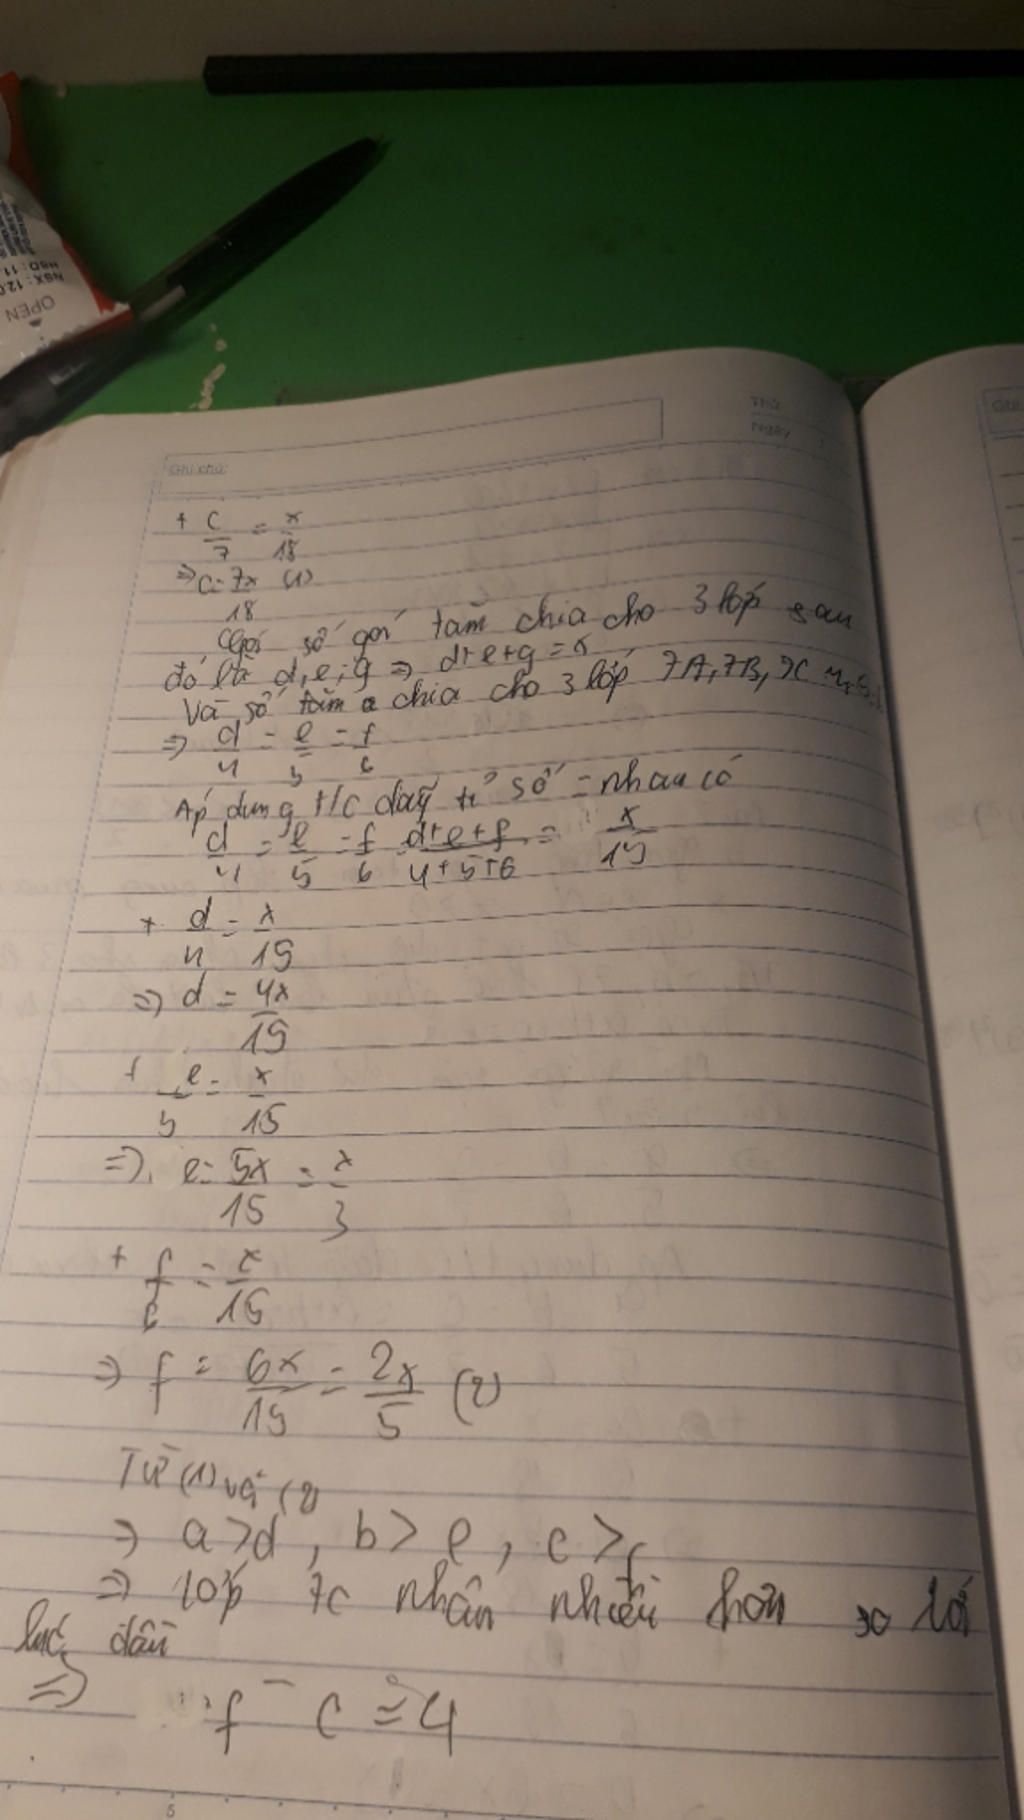 OPEN
NSX: 12.0
HSD: 11.
Thứ
Ngày
Ghi chú:
+ c/7 = x/18
=> c = 7x/18 (1)
Gọi số gói tăm chia cho 3 lớp sau
đó là d, e, g => d+e+g = x
Và số tăm chia cho 3 lớp 7A, 7B, 7C
=> d/4 = e/5 = f/6
Áp dụng t/c dãy tỉ số = nhau có
d/4 = e/5 = f/6 = d+e+f/4+5+6 = x/15
+ d/4 = x/15
=> d = 4x/15
+ e/5 = x/15
=> e = 5x/15 = x/3
+ f/6 = x/15
=> f = 6x/15 = 2x/5 (2)
Từ (1) và (2)
=> a > d, b > e, c > f
=> lớp 7C nhân nhiều hơn so
lúc đầu
=> f - c = 4
5